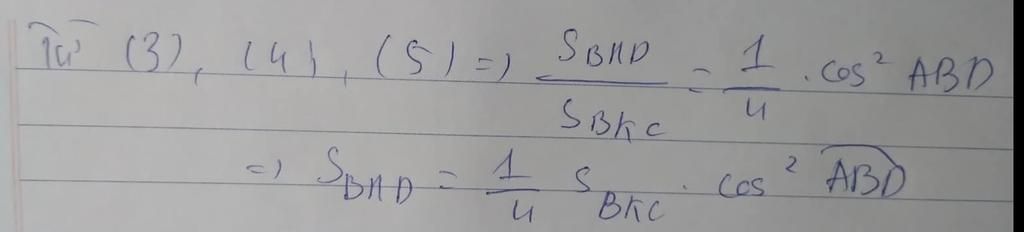 Từ (3), (4), (5) => S_BHD / S_BKC = 1/4 . cos² ABD
=> S_BHD = 1/4 S_BKC . cos² ABD